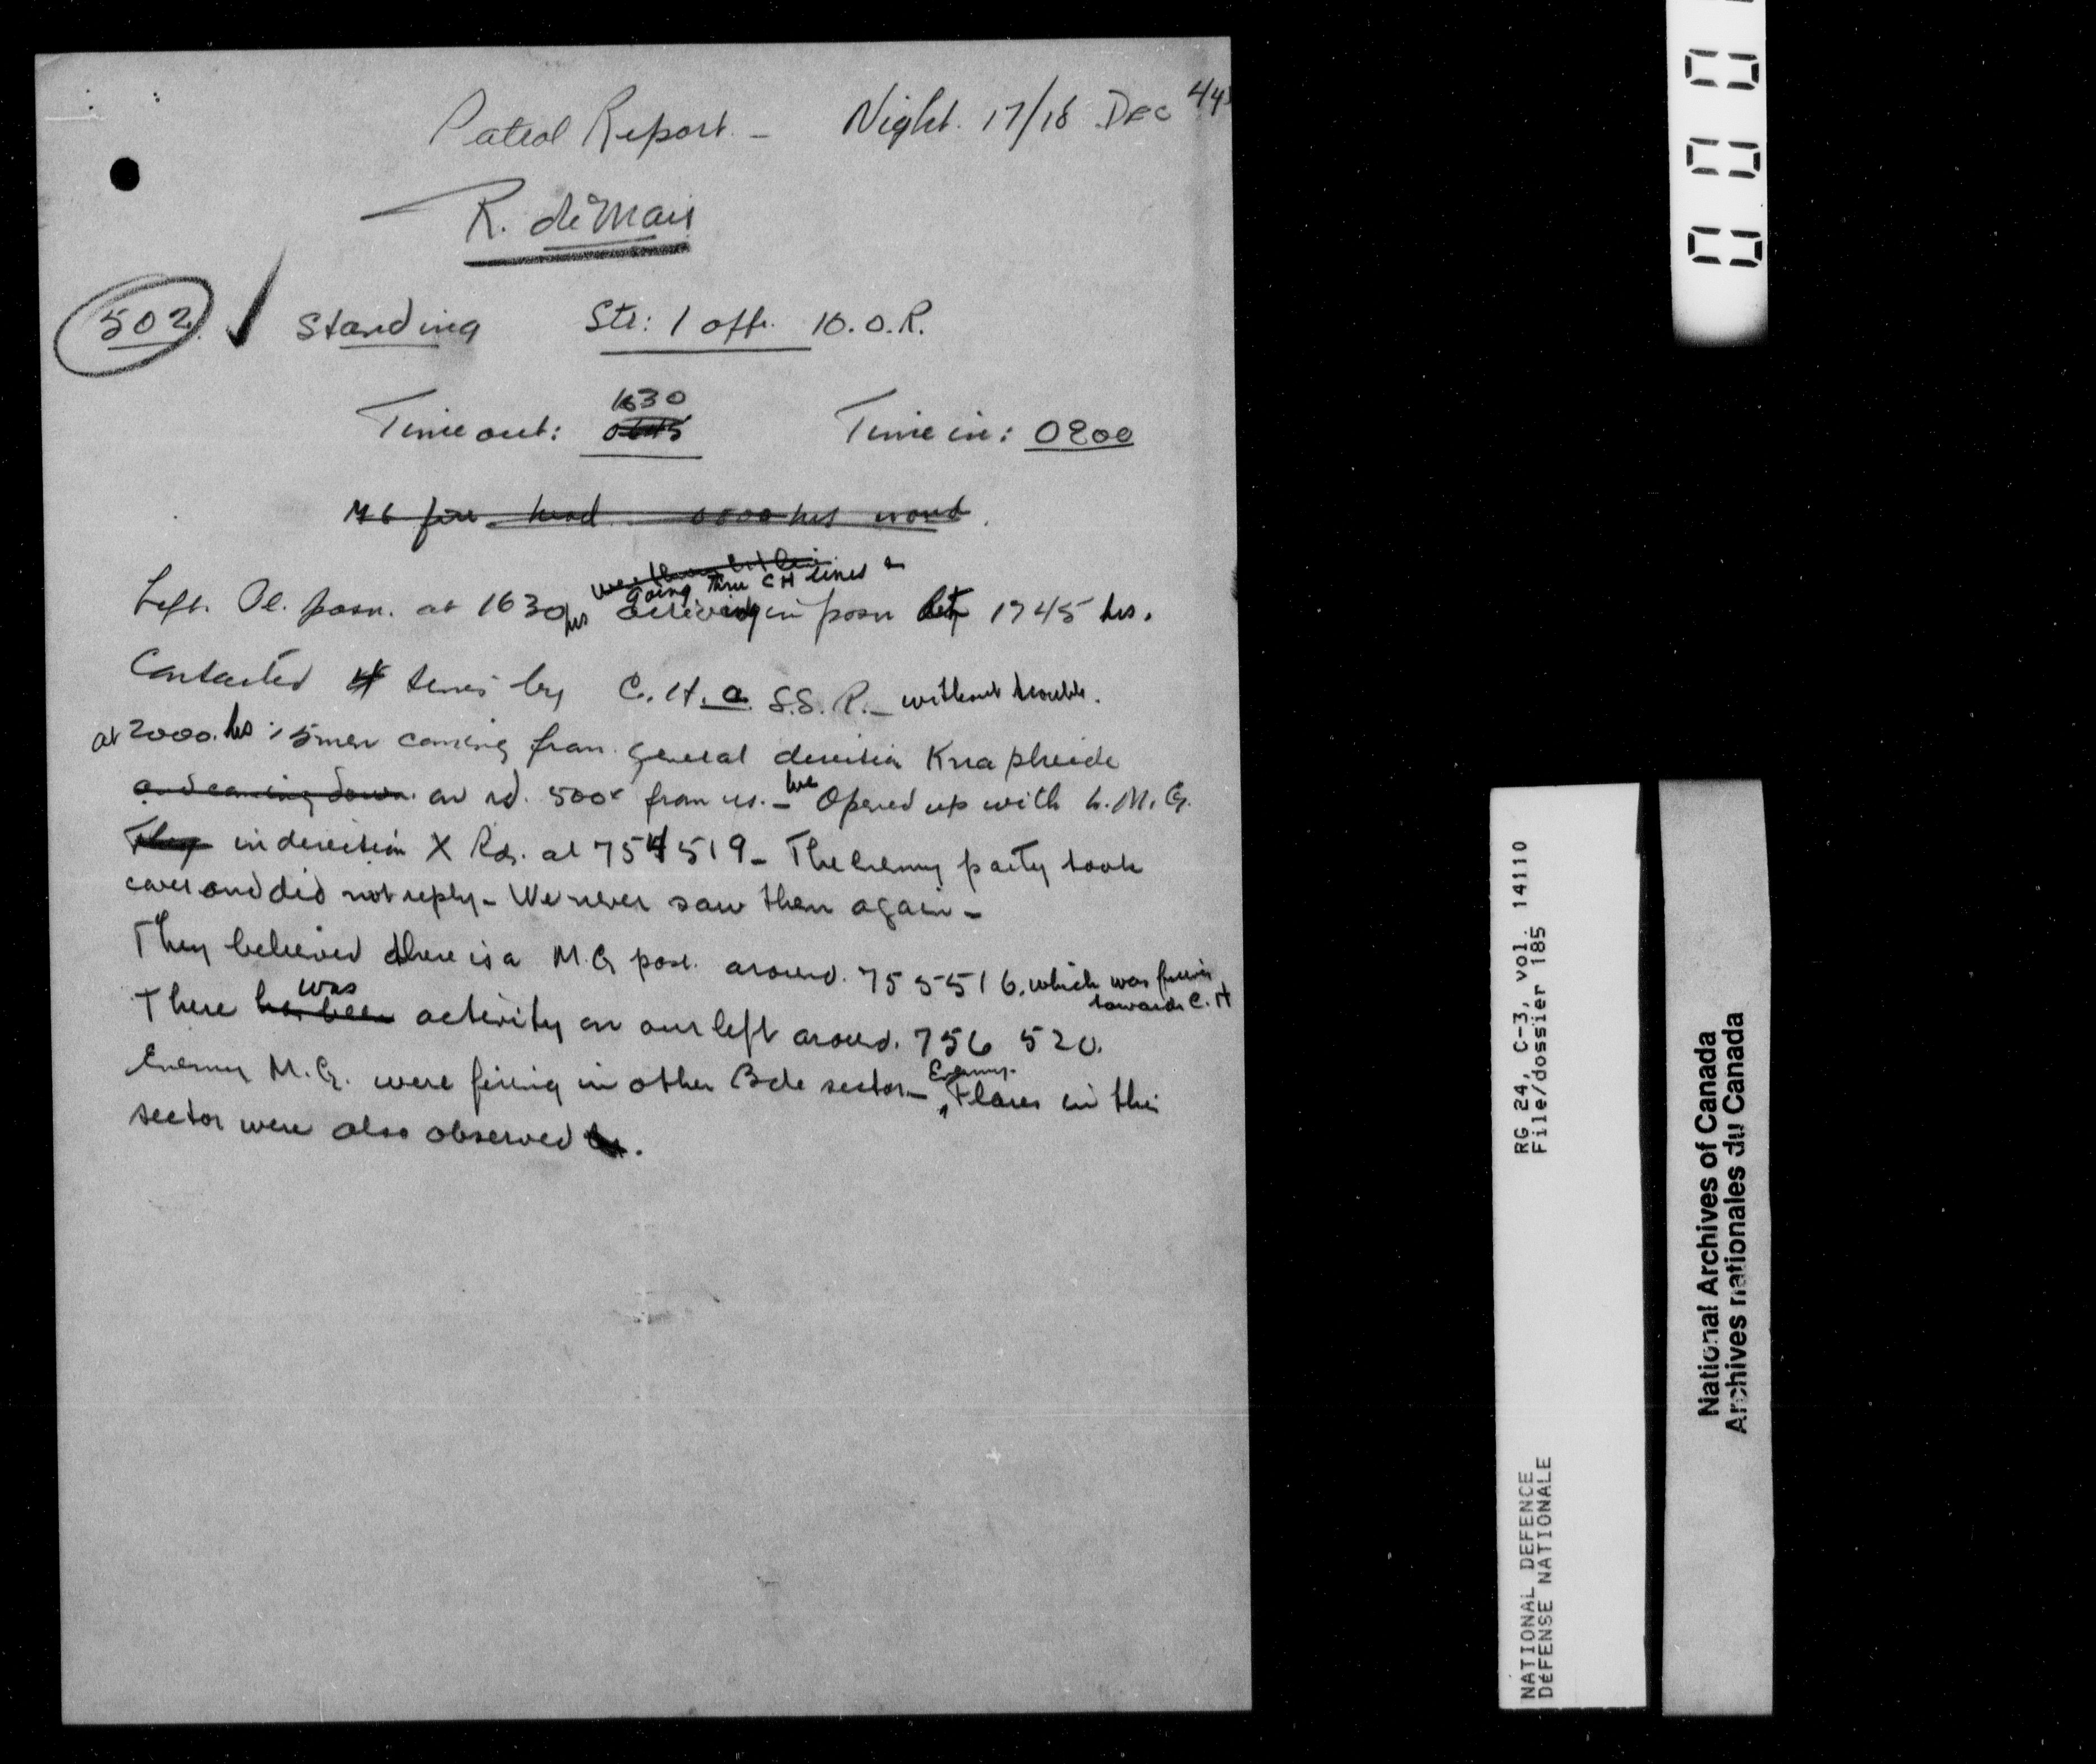 Patrol Report - Night. 17/18 Dec 44
R. de Mais
502. Standing Str: 1 off. 10. O.R.
1630
Time out: 0645 Time in: 0200
MG fire heard 0000 hrs
going thru CH lines
Left. Pl. posn. at 1630 hrs arriving in posn 1745 hrs.
Contacted times by C.H. a S.S.R. - without trouble.
at 2000. hrs 15 men coming from general direction Knapheide
and coming down on rd. 500x from us. - we Opened up with L.M.G.
They in direction X Rds. at 754519 - The enemy party took
cover and did not reply - We never saw them again -
They believed there is a M.G post. around. 755516. which was firing
towards C.H
was
There has been activity on our left around. 756 520.
Enemy M.G. were firing in other Bde sector - Enemy Flares in this
sector were also observed.
0 0 0
RG 24, C-3, vol. 14110
File/dossier 185
NATIONAL DEFENCE
DÉFENSE NATIONALE
National Archives of Canada
Archives nationales du Canada